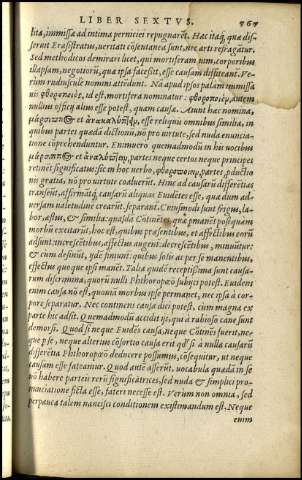 LIBER SEXTVS. 767
bita, immissa ad intima pernicies repugnaret. Hac itaq́; quæ dis-
serait Erasistratus, ueritati cōsentanea sunt, nec arti refragātur.
Sed methodici demirari licet, qui mortiferam uim, corporibus
illapsam, negotiorū, quæ ipsa facesit, esse causam diffiteant. Ve-
rum rudiuscule nomini attēdunt. Nā apud ipsos palam immissa
uis φθοροποιὸς, id est, mortifera nominatur. φθοροποιὸς, autem
nullius officij alius esse potest, quàm causæ. Aiunt hac nomina,
esse reliquis omnibus similia, in
quibus partes quædā dictionū, no pro uirtute, sed nuda enuncia-
tione cōprehenduntur. Enimuero quemadmodū in his uocibus
partes neque certos neque principes
retinet significatus: sic in hoc uerbo, φθοροποιὸς, partes pductio
nis gratia, nō pro uirtute coaluerūt. Hinc ad causarū differētias
transeūt, affirmātq́; causarū aliquas Euidētes esse, quæ dum ad-
uersam ualetudine crearūt, separant. Cuiusmodi sunt frigus, la-
bor, æstus, & similia: quasdā Cōtinētes, quæ manēt postquam
morbū excitarūt, hoc est, quibus præsentibus, et affectibus eorū
adsunt: increscētibus, affectus augent: decrescētibus, minuūtur:
& cum desinūt, unà finiunt: quibus solis ac per se manentibus,
effectus quoque ipsi manēt. Talia quidē receptissima sunt causa-
rum discrimina, quorū nulli Phthoropæō subijci potest. Euidens
enim causa nō est, quoniā morbus ipse permanet, nec ipsa à cor-
pore separatur. Nec continens causa dici potest, cum magna ex
parte hic adsit. Quemadmodū accidit ijs, qui à rabioso cane sunt
demorsi. Quod si neque Euidēs causa, neque Cōtinēs fuerit, ne-
que p se, neque alterum cōsortio causa erit qd́ si à nulla causarū
differētia Phthoropæō deducere possumus, cōsequitur, ut neque
causam esse fateantur. Quod autē asserūt, uocabula quædā in se
nō habere partei rerū significātrices, sed nuda & simplici pro-
nunciatione ficta esse, fateri necesse est. Verùm non omnia, sed
perpauca talem nancisci conditionem existimandum est. Neque
enim